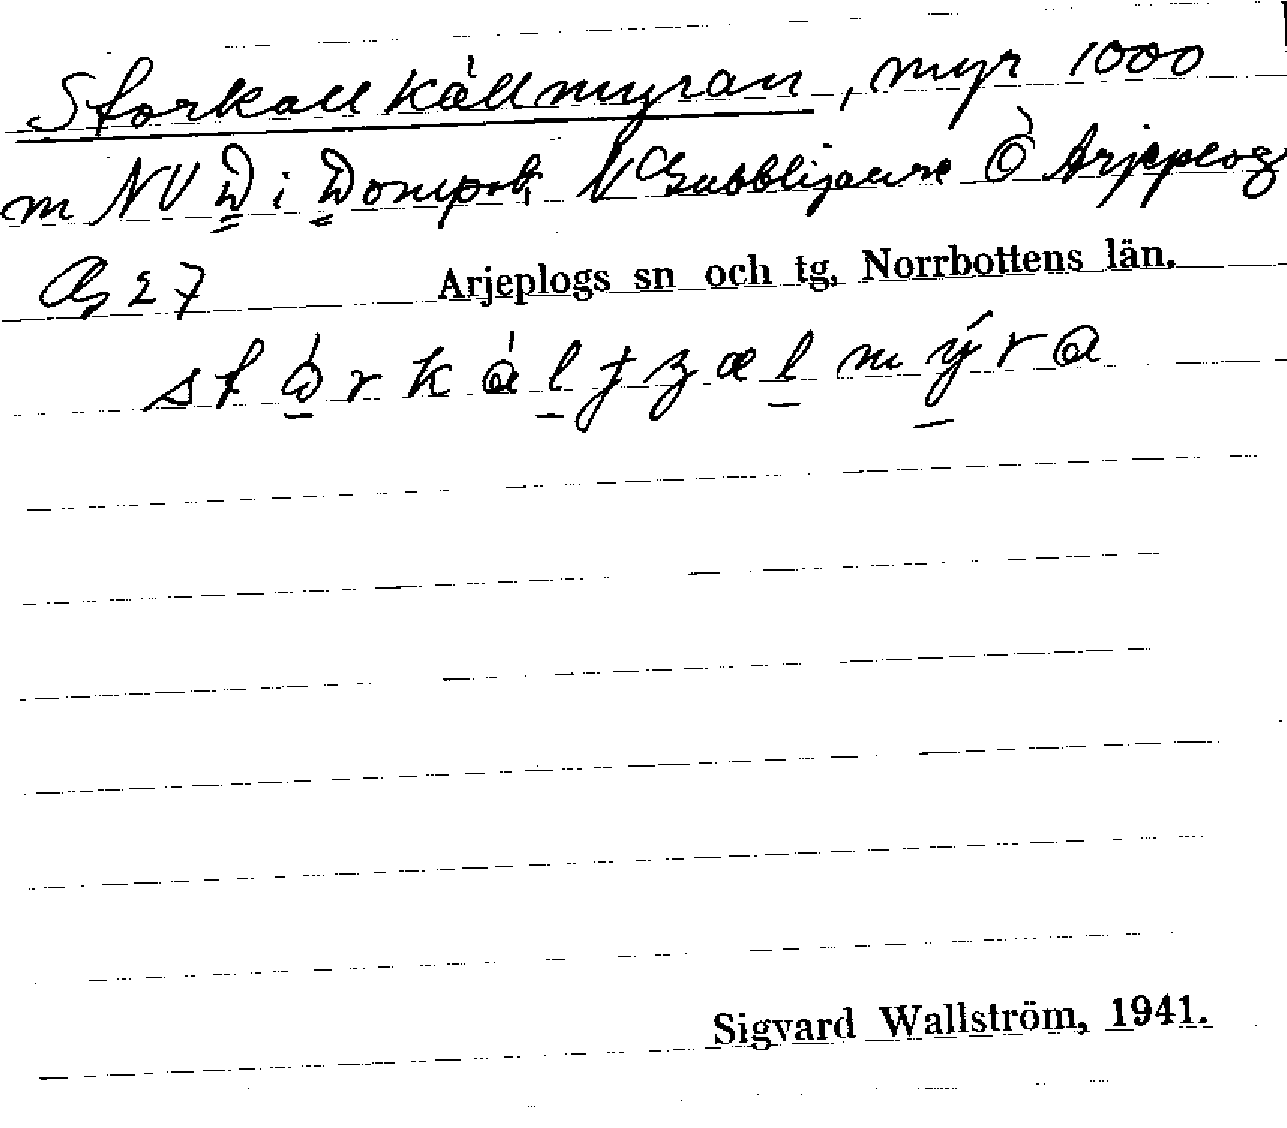 Storkallkällmyran, myr 1000
m NV D i Domp N Gubblijaure Ö Arjeplog
27 Arjeplogs sn och tg, Norrbottens län.
Sigvard Wallström, 1941.